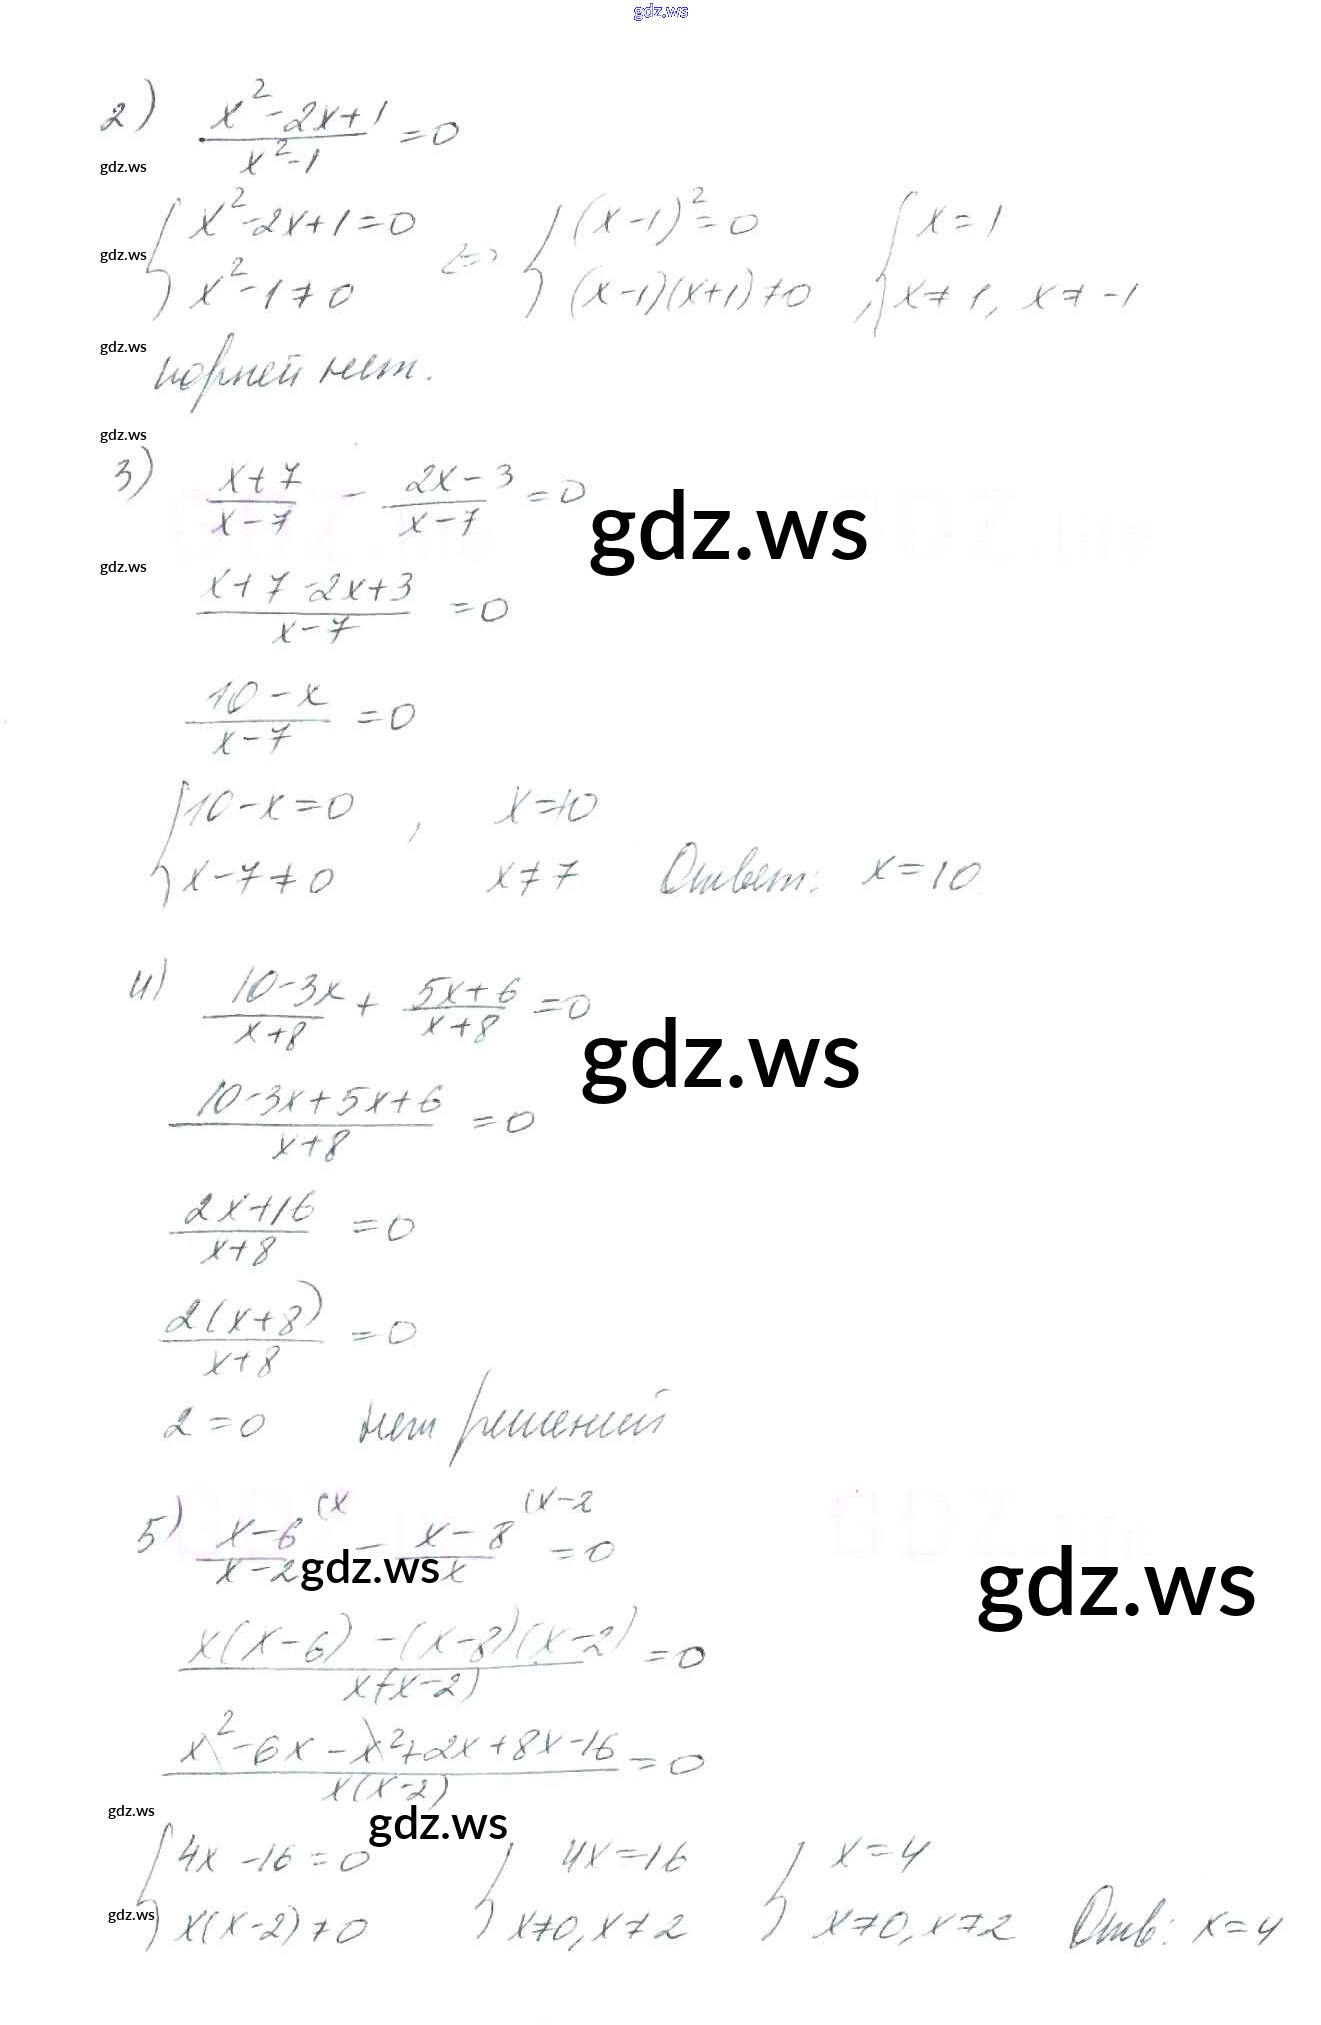 gdz.ws
2) (x² - 2x + 1)/(x² - 1) = 0
gdz.ws
{ x² - 2x + 1 = 0 <=> { (x - 1)² = 0 { x = 1
gdz.ws
x² - 1 ≠ 0 (x - 1)(x + 1) ≠ 0 , x ≠ 1, x ≠ -1
gdz.ws
корней нет.
gdz.ws
3) (x + 7)/(x - 7) - (2x - 3)/(x - 7) = 0
gdz.ws
gdz.ws
(x + 7 - 2x + 3)/(x - 7) = 0
(10 - x)/(x - 7) = 0
{ 10 - x = 0 , x = 10
x - 7 ≠ 0 x ≠ 7 Ответ: x = 10
4) (10 - 3x)/(x + 8) + (5x + 6)/(x + 8) = 0
gdz.ws
(10 - 3x + 5x + 6)/(x + 8) = 0
(2x + 16)/(x + 8) = 0
2(x + 8)/(x + 8) = 0
2 = 0 нет решений
5) (x - 6)/(x - 2) (x - (x - 8)/x (x - 2 = 0
gdz.ws
gdz.ws
(x(x - 6) - (x - 8)(x - 2))/(x(x - 2)) = 0
(x² - 6x - x² + 2x + 8x - 16)/(x(x - 2)) = 0
gdz.ws
gdz.ws
{ 4x - 16 = 0 { 4x = 16 { x = 4
gdz.ws
x(x - 2) ≠ 0 x ≠ 0, x ≠ 2 x ≠ 0, x ≠ 2 Отв: x = 4